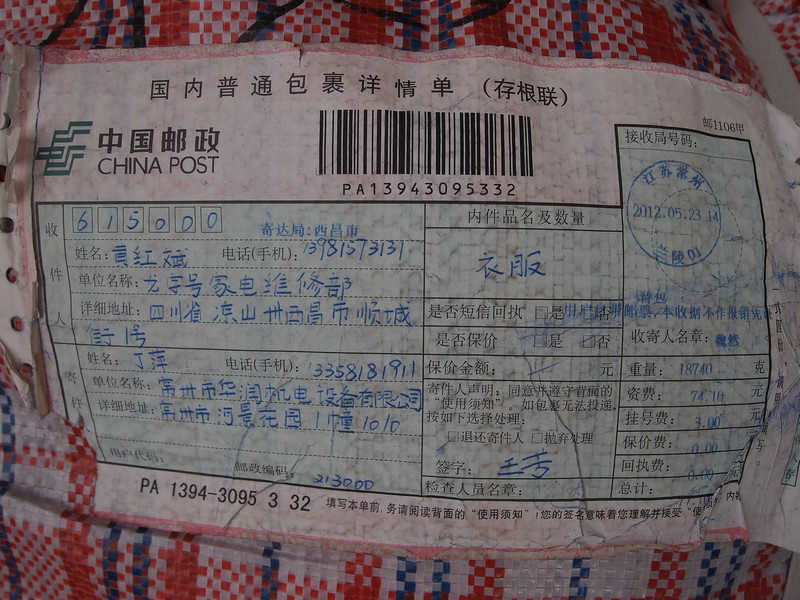 国内普通包裹详情单 (存根联)
邮1106甲
中国邮政
CHINA POST
PA13943095332
接收局号码:
江苏常州
2012.05.23 14
兰陵01
收件人
615000
寄达局:西昌市
内件品名及数量
姓名: 黄红斌 电话(手机): 13981573131
衣服
单位名称: 家电维修部
详细地址: 四川省凉山州西昌市顺城
街1号
是否短信回执 □是 □否
邮票,本收据不作报销凭
是否保价 □是 □否
收寄人名章:
寄件人
姓名: 丁萍 电话(手机): 13358181911
保价金额: 元
重量: 18740 克
单位名称: 常州市华润机电设备有限公司
寄件人声明:同意并遵守背面的
“使用须知”。如包裹无法投递,
按如下选择处理:
资费: 74.10 元
详细地址: 常州市河景花园1幢1010
挂号费: 3.00 元
□退还寄件人 □抛弃处理
保价费: 0.00 元
用户代码: 邮政编码: 213000
签字:
回执费: 0.00 元
检查人员名章:
总计:
PA 1394-3095 3 32
填写本单前,务请阅读背面的“使用须知”!您的签名意味着您理解并接受“使